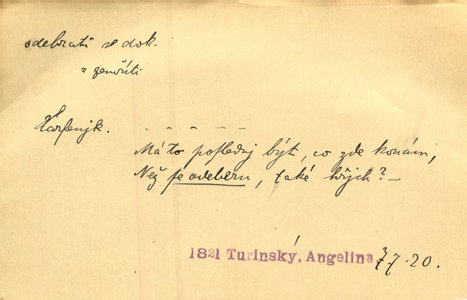 odebrati se dok.
Harfenjk. - - - - -
Má to poslednj býti, co zde konám,
Než se odeberu, také hřjch? -
1821 Turinský, Angelina 77.20.